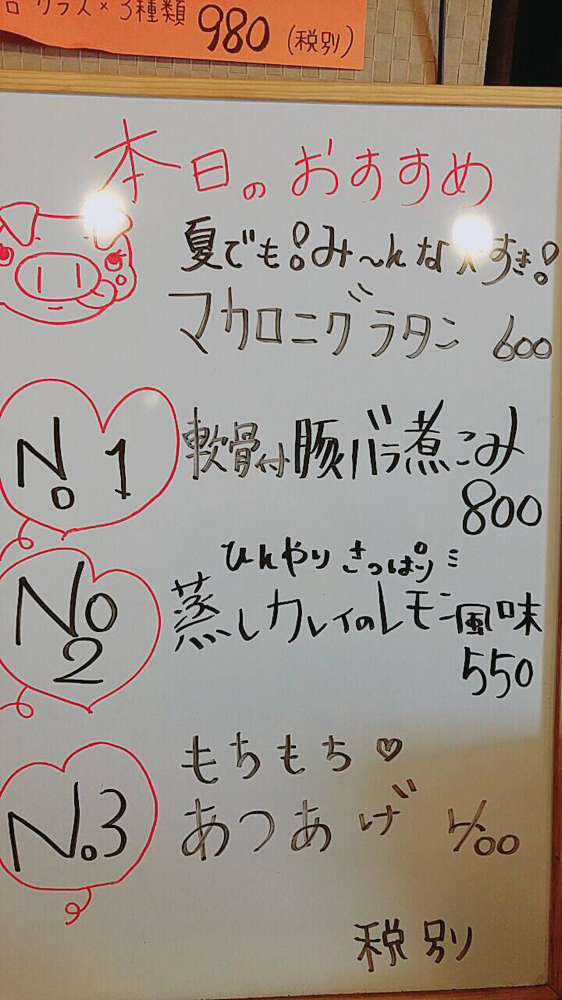 グラス×3種類 980（税別）
本日のおすすめ
夏でも！み～んな大すき！
マカロニグラタン 600
No 1 軟骨付豚バラ煮こみ
800
ひんやりさっぱり
No 2 蒸しカレイのレモン風味
550
もちもち♡
No.3 あつあげ 400
税別